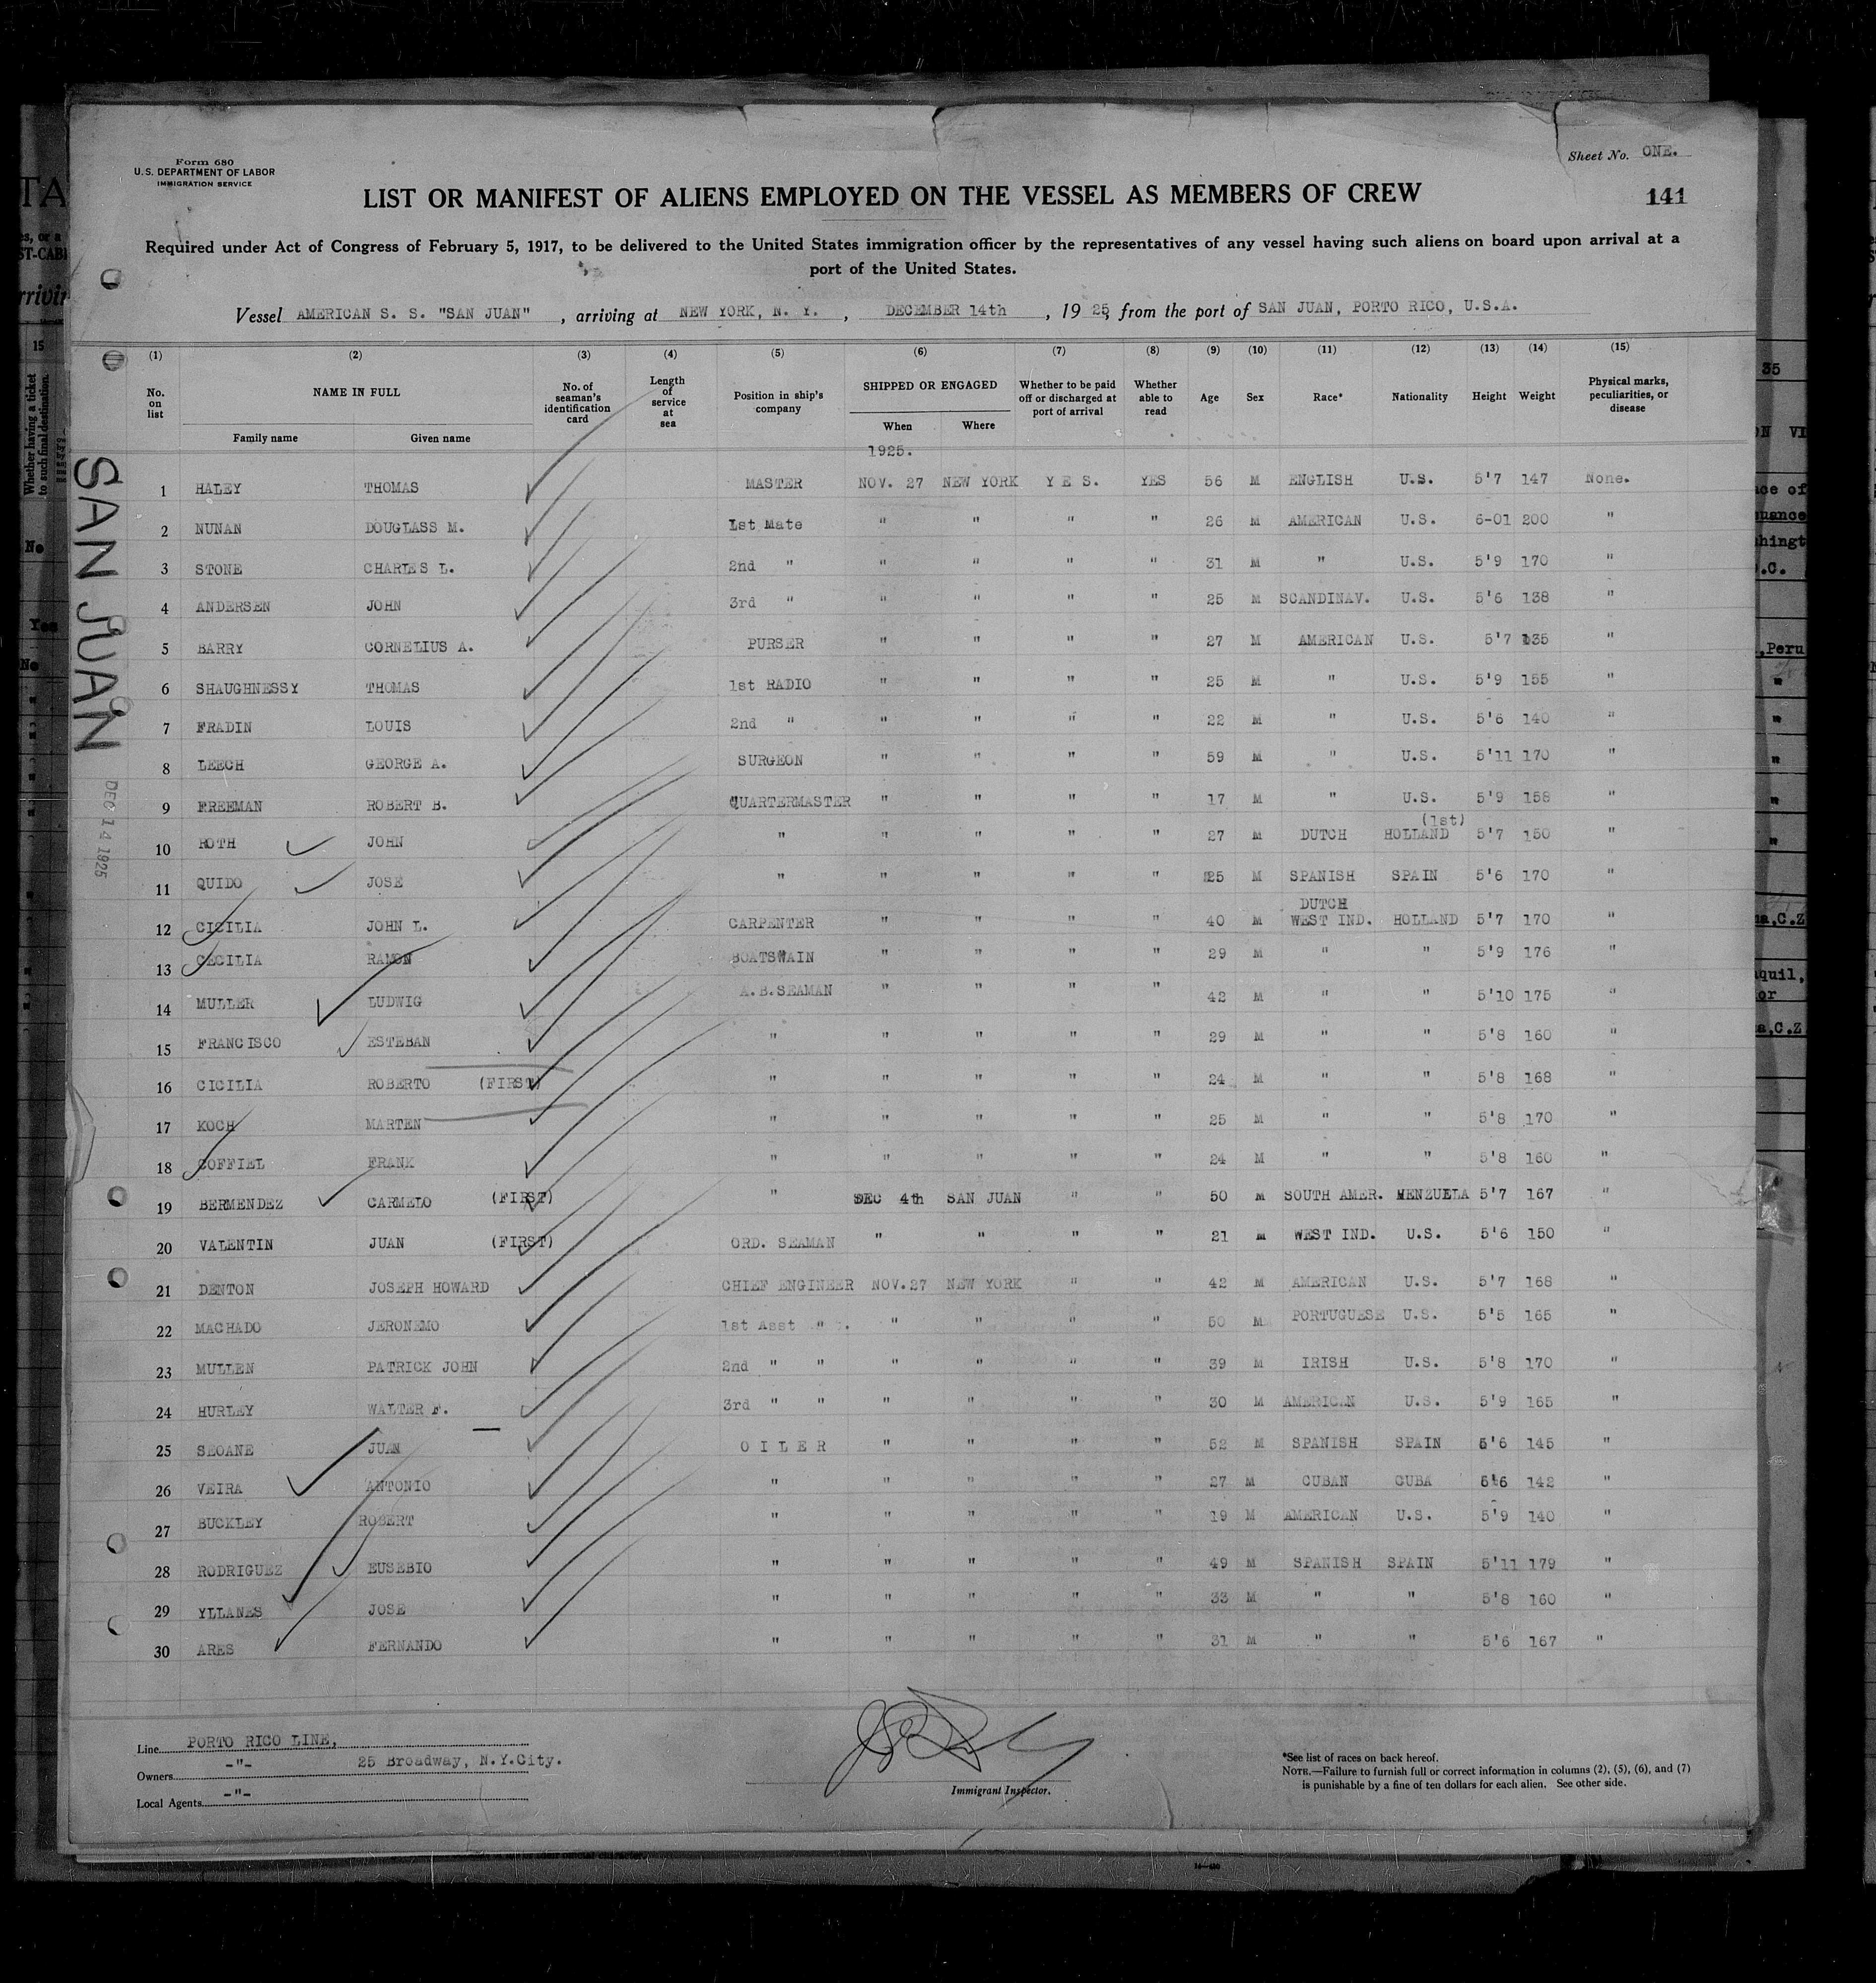 Form 680
U.S. DEPARTMENT OF LABOR
IMMIGRATION SERVICE
Sheet No. ONE.
LIST OR MANIFEST OF ALIENS EMPLOYED ON THE VESSEL AS MEMBERS OF CREW
141
Required under Act of Congress of February 5, 1917, to be delivered to the United States immigration officer by the representatives of any vessel having such aliens on board upon arrival at a
port of the United States.
Vessel AMERICAN S. S. "SAN JUAN" , arriving at NEW YORK, N. Y. , DECEMBER 14th , 1925, from the port of SAN JUAN, PORTO RICO, U.S.A.
(1) (2) (3) (4) (5) (6) (7) (8) (9) (10) (11) (12) (13) (14) (15)
No. on list NAME IN FULL Family name Given name No. of seaman's identification card Length of service at sea Position in ship's company SHIPPED OR ENGAGED When Where Whether to be paid off or discharged at port of arrival Whether able to read Age Sex Race* Nationality Height Weight Physical marks, peculiarities, or disease
1925.
1 HALEY THOMAS MASTER NOV. 27 NEW YORK Y E S. YES 56 M ENGLISH U.S. 5'7 147 None.
2 NUNAN DOUGLASS M. 1st Mate " " " " 26 M AMERICAN U.S. 6-01 200 "
3 STONE CHARLES L. 2nd " " " " " 31 M " U.S. 5'9 170 "
4 ANDERSEN JOHN 3rd " " " " " 25 M SCANDINAV. U.S. 5'6 138 "
5 BARRY CORNELIUS A. PURSER " " " " 27 M AMERICAN U.S. 5'7 135 "
6 SHAUGHNESSY THOMAS 1st RADIO " " " " 25 M " U.S. 5'9 155 "
7 FRADIN LOUIS 2nd " " " " " 22 M " U.S. 5'6 140 "
8 LEECH GEORGE A. SURGEON " " " " 59 M " U.S. 5'11 170 "
9 FREEMAN ROBERT B. QUARTERMASTER " " " " 17 M " U.S. 5'9 158 "
(1st)
10 ROTH JOHN " " " " " 27 M DUTCH HOLLAND 5'7 150 "
11 QUIDO JOSE " " " " " 25 M SPANISH SPAIN 5'6 170 "
DUTCH
12 CICILIA JOHN L. CARPENTER " " " " 40 M WEST IND. HOLLAND 5'7 170 "
13 CECILIA RAMON BOATSWAIN " " " " 29 M " " 5'9 176 "
14 MULLER LUDWIG A.B.SEAMAN " " " " 42 M " " 5'10 175 "
15 FRANCISCO ESTEBAN " " " " " 29 M " " 5'8 160 "
16 CICILIA ROBERTO (FIRST) " " " " " 24 M " " 5'8 168 "
17 KOCH MARTEN " " " " " 25 M " " 5'8 170 "
18 COFFIEL FRANK " " " " " 24 M " " 5'8 160 "
19 BERMENDEZ CARMELO (FIRST) " DEC 4th SAN JUAN " " 50 M SOUTH AMER. VENZUELA 5'7 167 "
20 VALENTIN JUAN (FIRST) ORD. SEAMAN " " " " 21 M WEST IND. U.S. 5'6 150 "
21 DENTON JOSEPH HOWARD CHIEF ENGINEER NOV.27 NEW YORK " " 42 M AMERICAN U.S. 5'7 168 "
22 MACHADO JERONEMO 1st Asst " " " " " 50 M PORTUGUESE U.S. 5'5 165 "
23 MULLEN PATRICK JOHN 2nd " " " " " " 39 M IRISH U.S. 5'8 170 "
24 HURLEY WALTER F. 3rd " " " " " " 30 M AMERICAN U.S. 5'9 165 "
25 SEOANE JUAN O I L E R " " " " 52 M SPANISH SPAIN 5'6 145 "
26 VEIRA ANTONIO " " " " " 27 M CUBAN CUBA 5'6 142 "
27 BUCKLEY ROBERT " " " " " 19 M AMERICAN U.S. 5'9 140 "
28 RODRIGUEZ EUSEBIO " " " " " 49 M SPANISH SPAIN 5'11 179 "
29 YLLANES JOSE " " " " " 33 M " " 5'8 160 "
30 ARES FERNANDO " " " " " 31 M " " 5'6 167 "
SAN JUAN
DEC 14 1925
Line PORTO RICO LINE,
Owners -"- 25 Broadway, N.Y.City.
Local Agents -"-
Immigrant Inspector.
*See list of races on back hereof.
NOTE.—Failure to furnish full or correct information in columns (2), (5), (6), and (7)
is punishable by a fine of ten dollars for each alien. See other side.